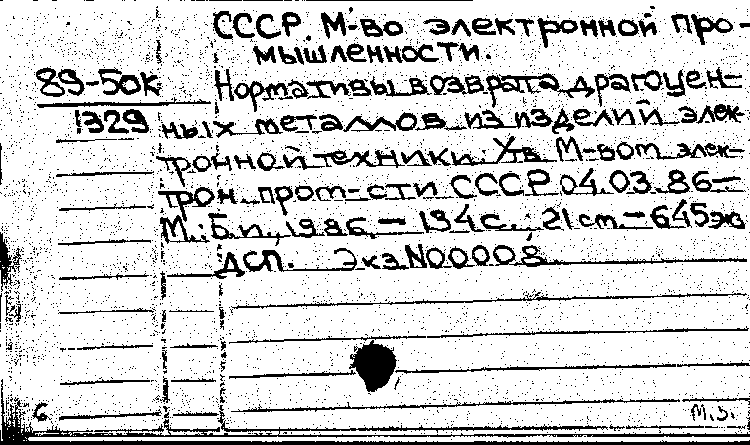 СССР. М-во электронной про-
мышленности.
89-50к
Нормативы возврата драгоцен-
1329
ных металлов из изделий элек-
тронной техники: Утв М-вот элек-
трон. пром-сти СССР 04.03.86-
М.: Б.и., 1986. - 194с.; 21 ст. - 645экз
ДСП. Экз N00008
6
М.З.